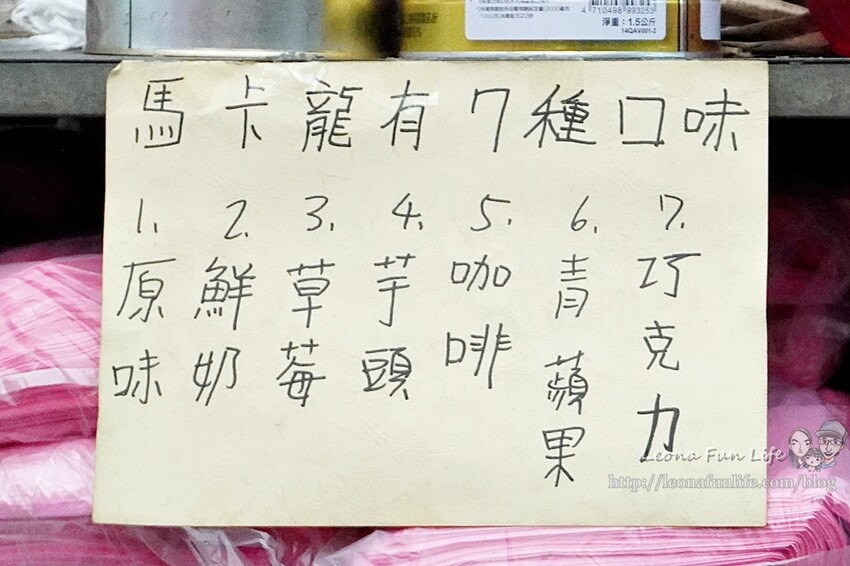 4 710498 993253
淨重：1.5公斤
14QAV001-2
馬卡龍有7種口味
1. 原味
2. 鮮奶
3. 草莓
4. 芋頭
5. 咖啡
6. 青蘋果
7. 巧克力
Leona Fun Life
http://leonafunlife.com/blog